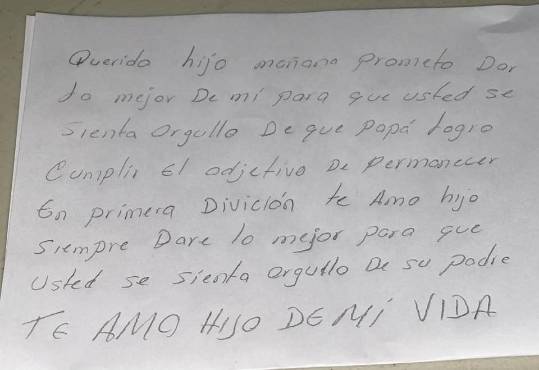 Querido hijo mañana prometo Dar
lo mejor De mi para que usted se
sienta orgullo De que papá logro
Cumplir el adjetivo De permanecer
En primera Divición te Amo hijo
siempre Dare lo mejor para que
usted se sienta orgullo De su padre
TE AMO HIJO DE Mi VIDA